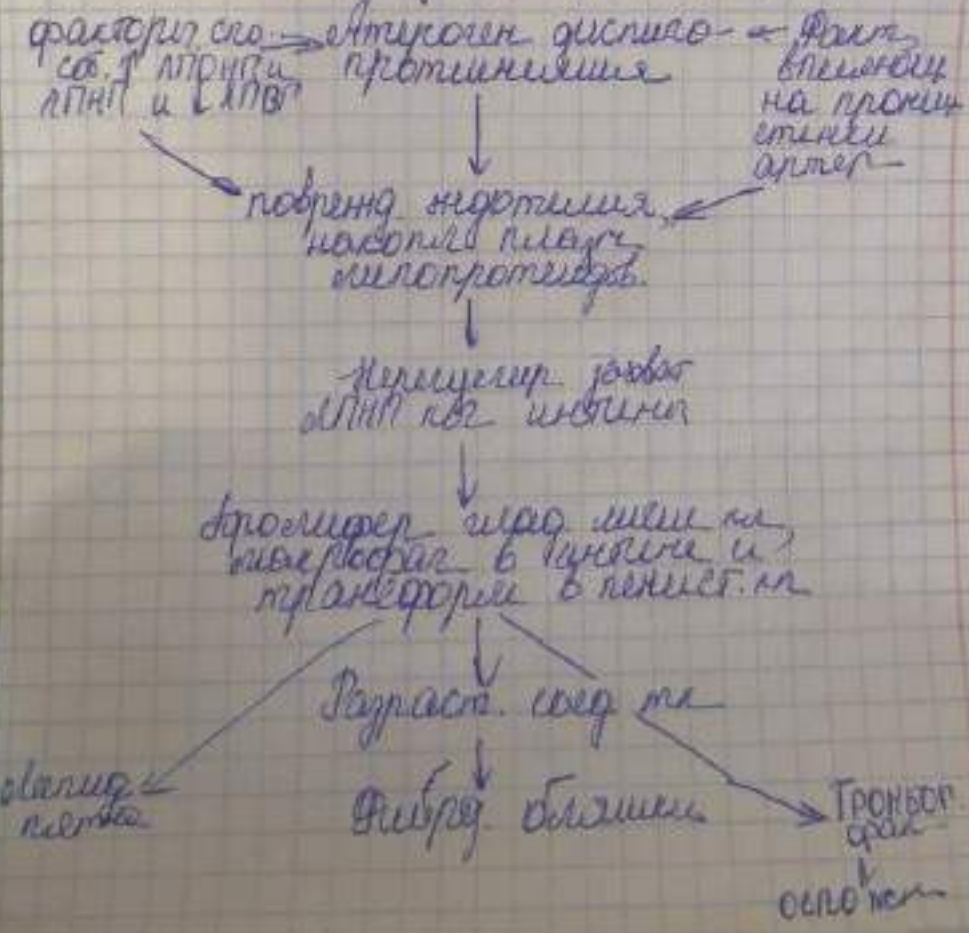 факторы спо-
соб. ↑ ЛПОНП и
ЛПНП и ↓ ЛПВП
Атероген дислипо-
протеинемия
Факт,
влияющ
на прониц
стенки
артер
поврежд эндотелия,
накопл плазм,
липопротеидов.
Нерегулир захват
ЛПНП кл интимы
Пролифер глад мыш кл,
макрофаг в интиме и
трансформ в пенист. кл
Разраст. соед тк
Липид
пятна
Фибр. бляшки
Тромбог
фак
ослож